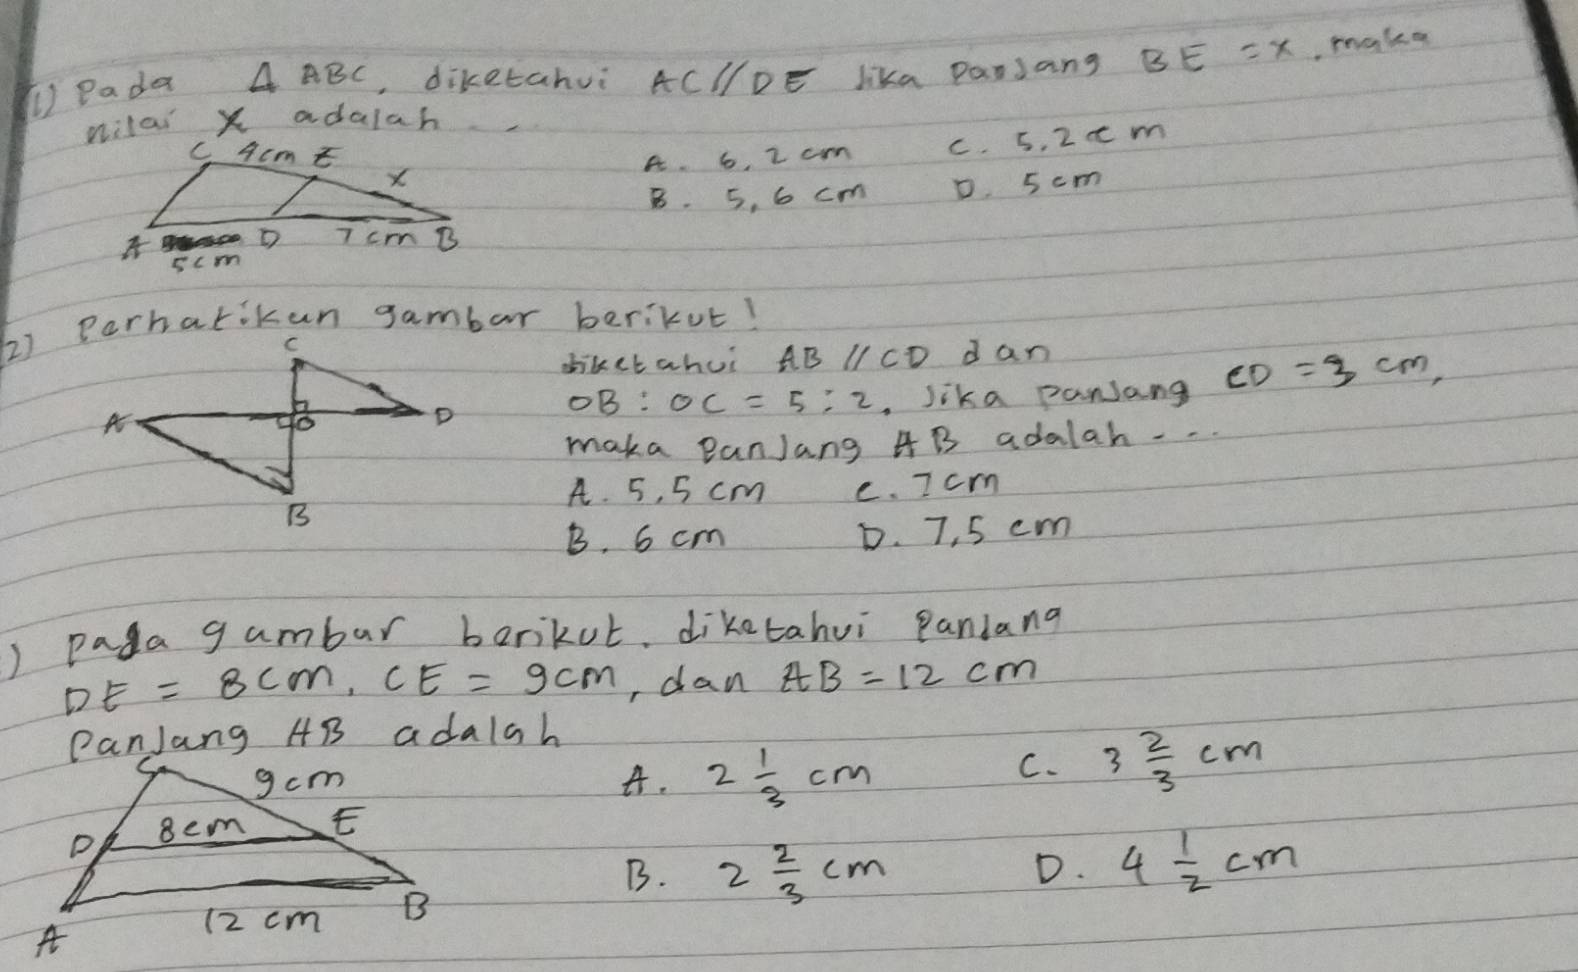 1) Pada Δ ABC, diketahui AC//DE Jika Panjang BE = x, maka
nilai x adalah ...
C 4cm E
x
A D 7cm B
5cm
A. 6,2 cm C. 5,2 cm
B. 5,6 cm D. 5 cm
2) Perhatikan gambar berikut!
C
A O D
B
diketahui AB // CD dan
OB : OC = 5 : 2, Jika Panjang CD = 3 cm,
maka Panjang AB adalah ...
A. 5,5 cm C. 7 cm
B. 6 cm D. 7,5 cm
) Pada gambar berikut. diketahui Panjang
DE = 8cm, CE = 9cm, dan AB = 12 cm
Panjang AB adalah
C 9cm
D 8cm E
A 12 cm B
A. 2 1/3 cm C. 3 2/3 cm
B. 2 2/3 cm D. 4 1/2 cm